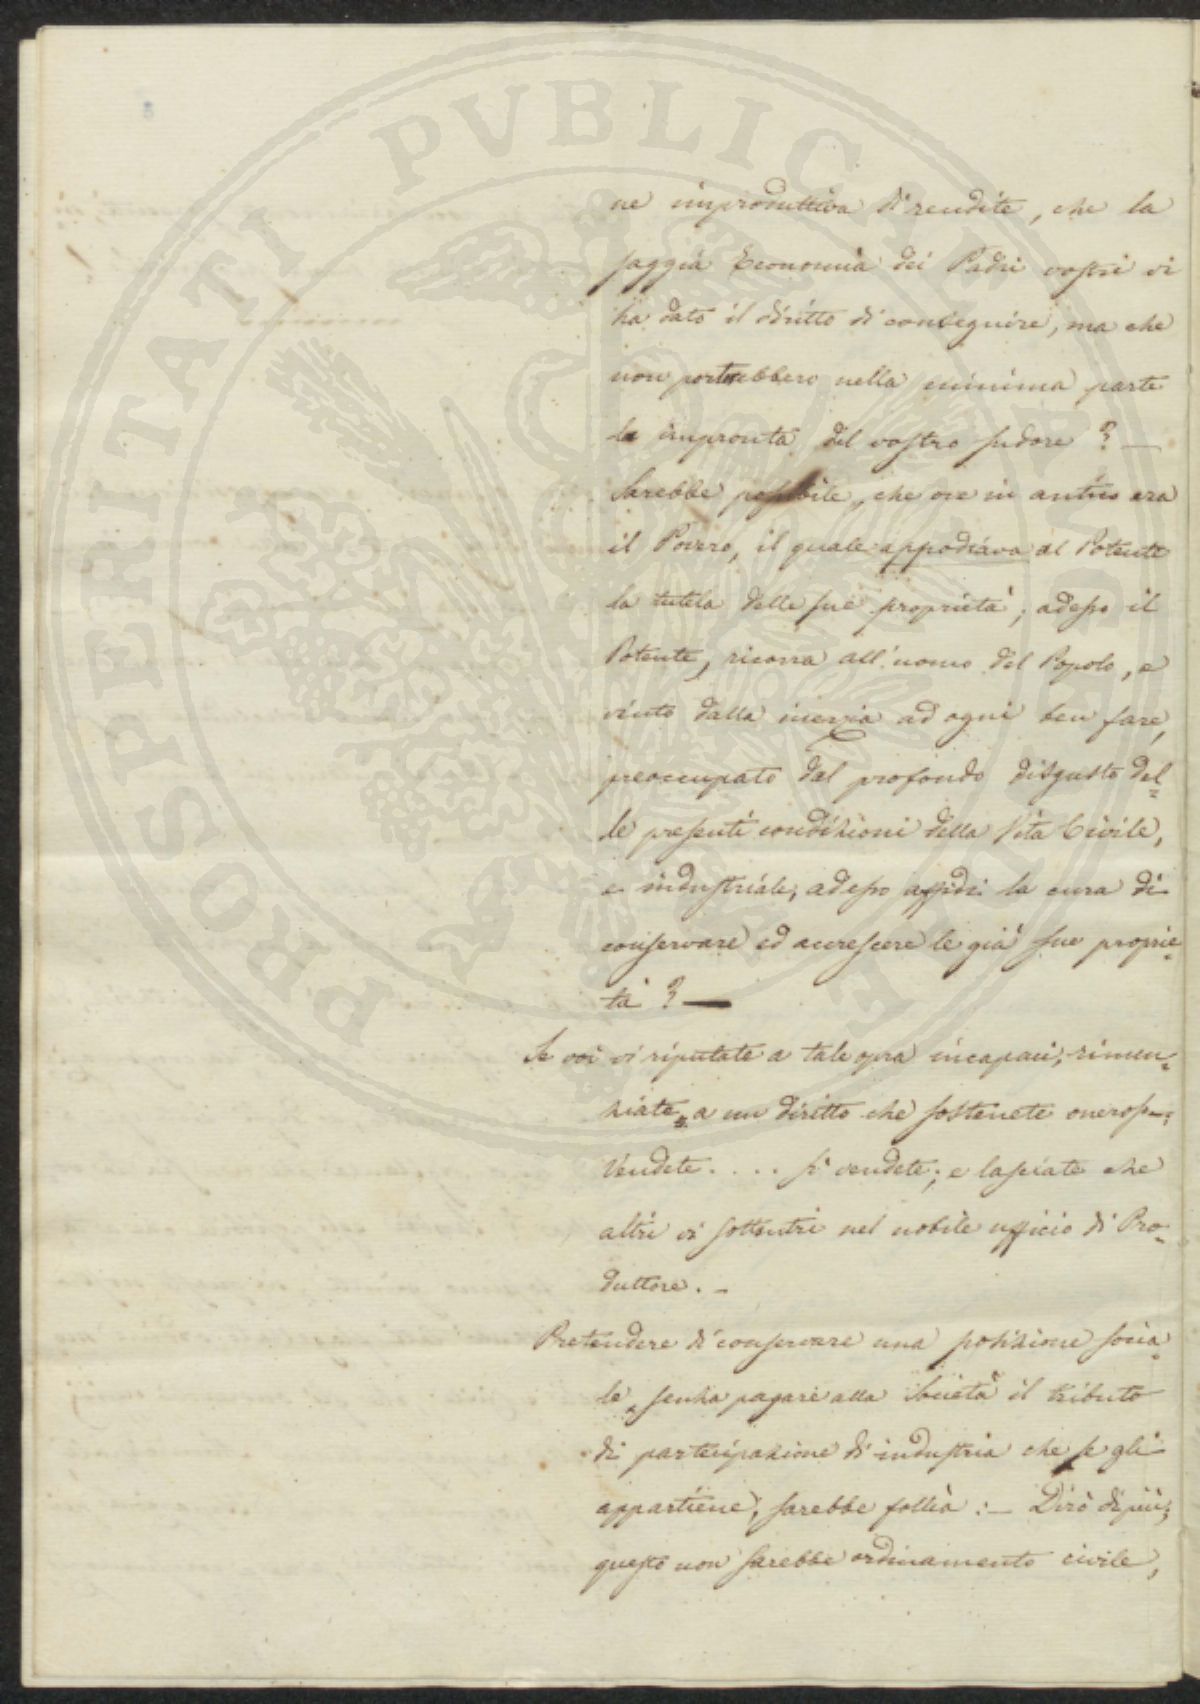 PROSPERITATI PVBLICAE AVGENDAE
ne improduttiva di rendite, che la
saggia Economia dei Padri vostri vi
ha dato il diritto di conseguire, ma che
non porterebbero nella minima parte
la impronta del vostro sudore ? —
Sarebbe possibile, che ove in antico era
il Povero, il quale appodiava al Potente
la tutela delle sue proprietà, adesso il
Potente, ricorra all'uomo del Popolo, e
vinto dalla inerzia ad ogni ben fare,
preoccupato dal profondo disgusto del=
le presenti condizioni della Vita Civile,
e industriale, adesso affidi la cura di
conservare ed accrescere le già sue proprie=
tà ? —
Se voi vi riputate a tale opra incapaci, rinun=
ziate, a un diritto che sostenete oneroso;
Vendete . . . . sì vendete; e lasciate che
altri vi sottentri nel nobile ufficio di Pro=
duttore. –
Pretendere di conservare una posizione socia=
le, senza pagare alla Società il tributo
di partecipazione di industria che se gli
appartiene, sarebbe follia : – Dirò di più;
questo non sarebbe ordinamento civile,